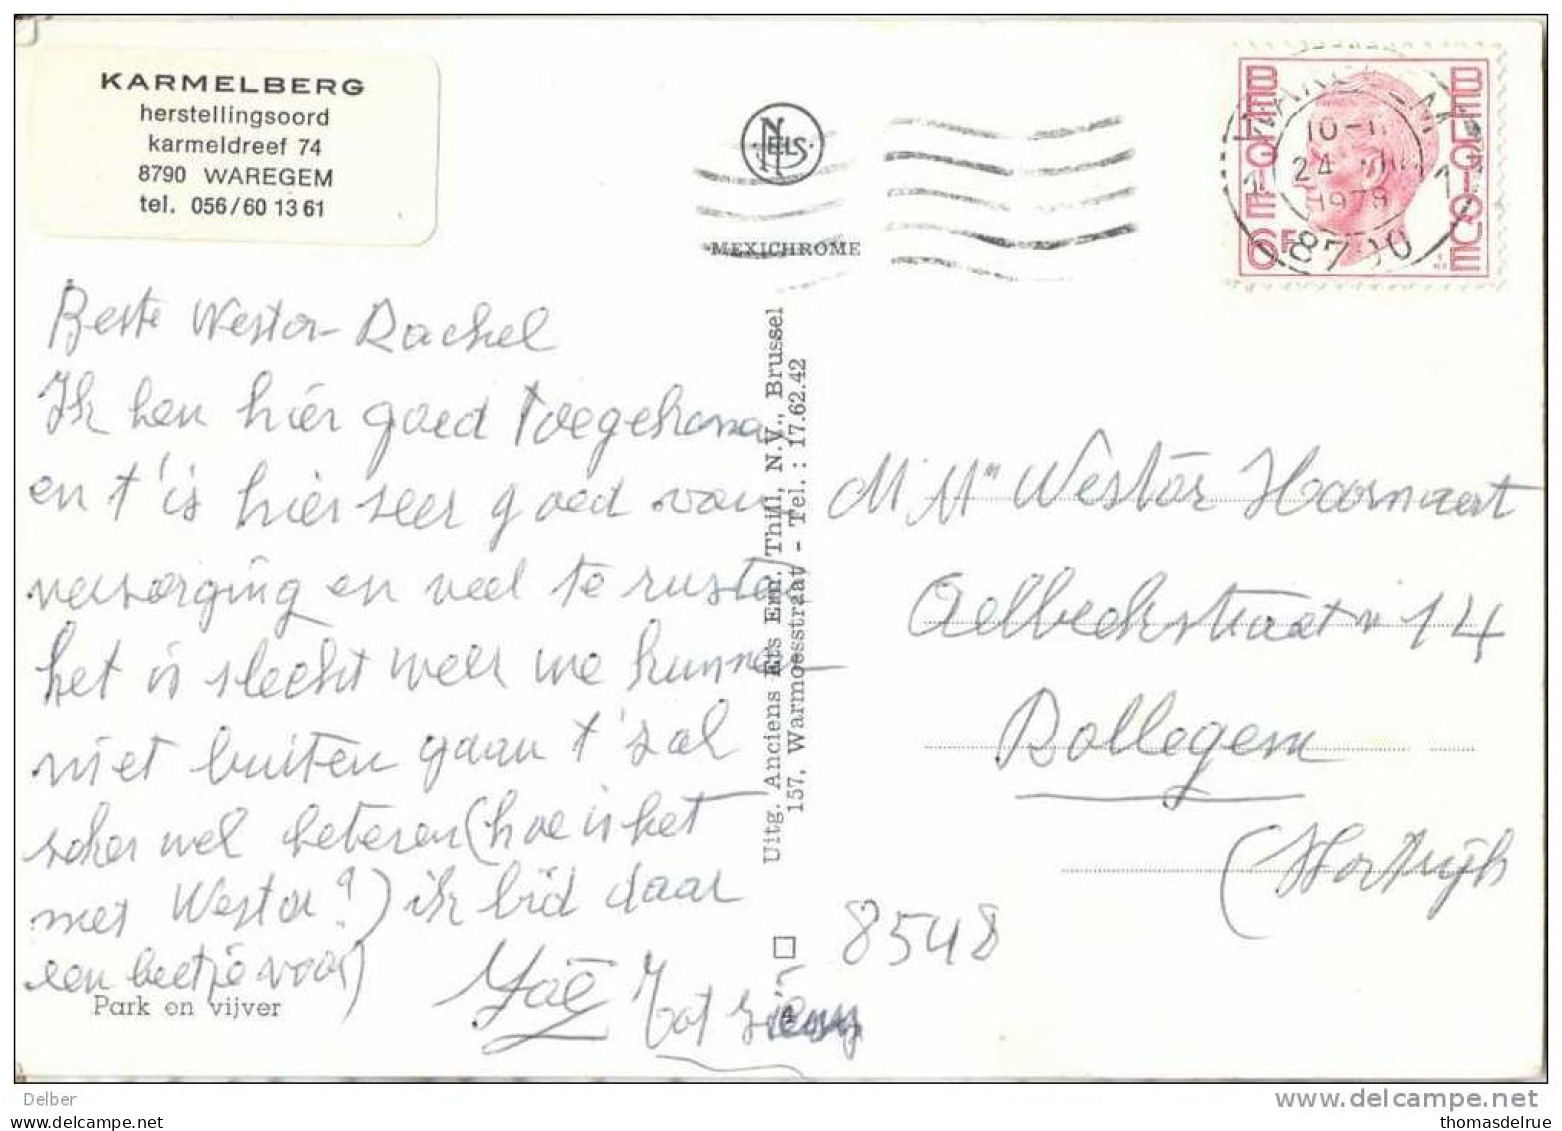 KARMELBERG
herstellingsoord
karmeldreef 74
8790 WAREGEM
tel. 056/60 13 61
NELS
MEXICHROME
BELGIE-BELGIQUE
6F
10-11
24
1978
8790
Beste Westor-Rachel
Ik ben hier goed toegekomen
en t'is hier zeer goed van
verzorging en veel te rusten
het is slecht weer we kunnen
niet buiten gaan t'zal
zeker wel beteren (hoe is het
met Westor?) ik bid daar
een beetje voor)
Tot ziens
Park en vijver
Uitg. Anciens Ets Ern. Thill, N.V., Brussel
157, Warmoesstraat - Tel. : 17.62.42
M Mn Westor Hoornaert
Aelbeckstraat n 14
Bollegem
(Kortrijk
8548
Delber
delcampe.net
thomasdelrue